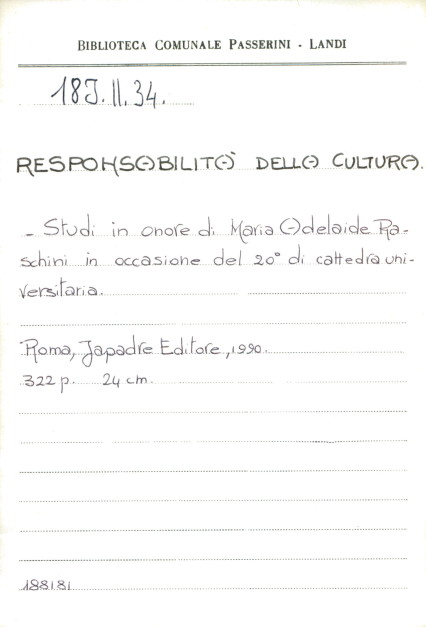 BIBLIOTECA COMUNALE PASSERINI - LANDI
18J.II.34.
RESPONSABILITÀ DELLA CULTURA.
- Studi in onore di Maria Adelaide Ra-
schini in occasione del 20° di cattedra uni-
versitaria.
Roma, Japadre Editore, 1990.
322 p. 24 cm.
188181